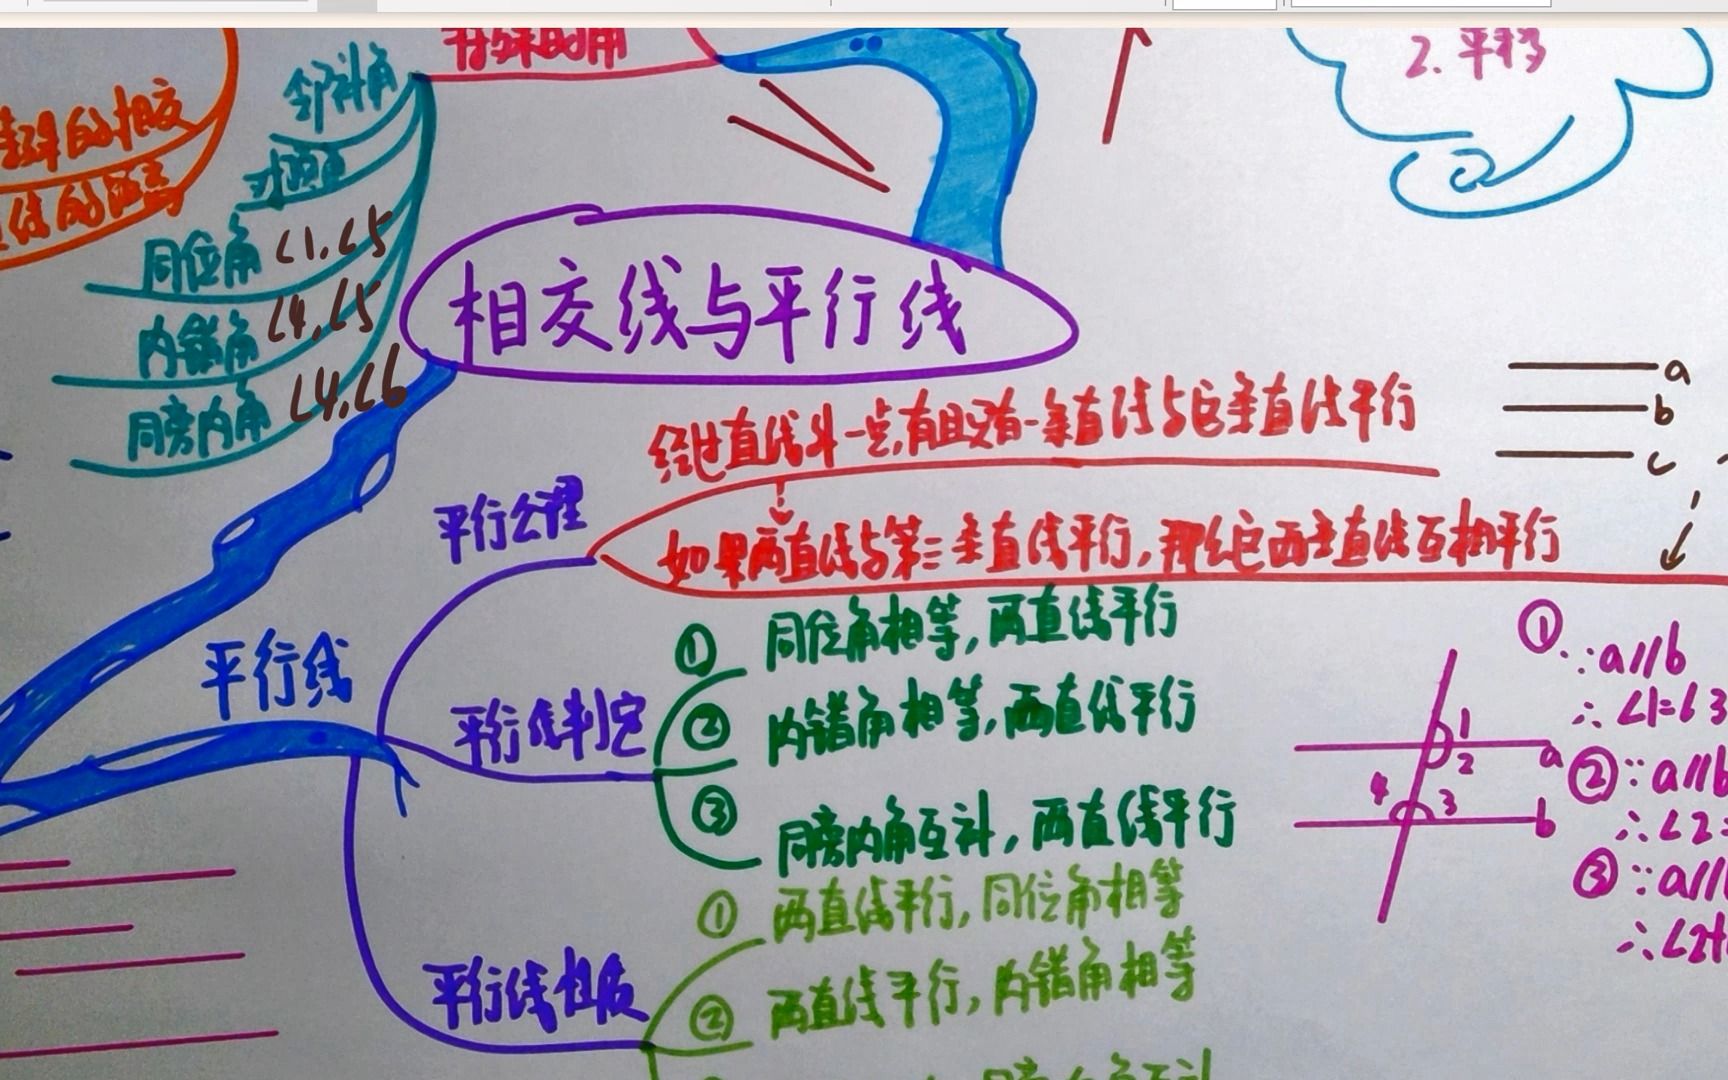 特殊的角
2. 平移
邻补角
的相交
对顶角
线的
同位角 ∠1.∠5
内错角 ∠4,∠5
同旁内角 ∠4,∠6
相交线与平行线
a
b
c
经过直线外一点,有且只有一条直线与它条直线平行
平行公理
如果两直线与第三条直线平行,那么它两条直线互相平行
平行线
平行线判定
① 同位角相等,两直线平行
② 内错角相等,两直线平行
③ 同旁内角互补,两直线平行
平行线性质
① 两直线平行,同位角相等
② 两直线平行,内错角相等
同旁内角互补
1
2
a
4
3
b
① ∵a//b
∴∠1=∠3
② ∵a//b
∴∠2=
③ ∵a//
∴∠2+